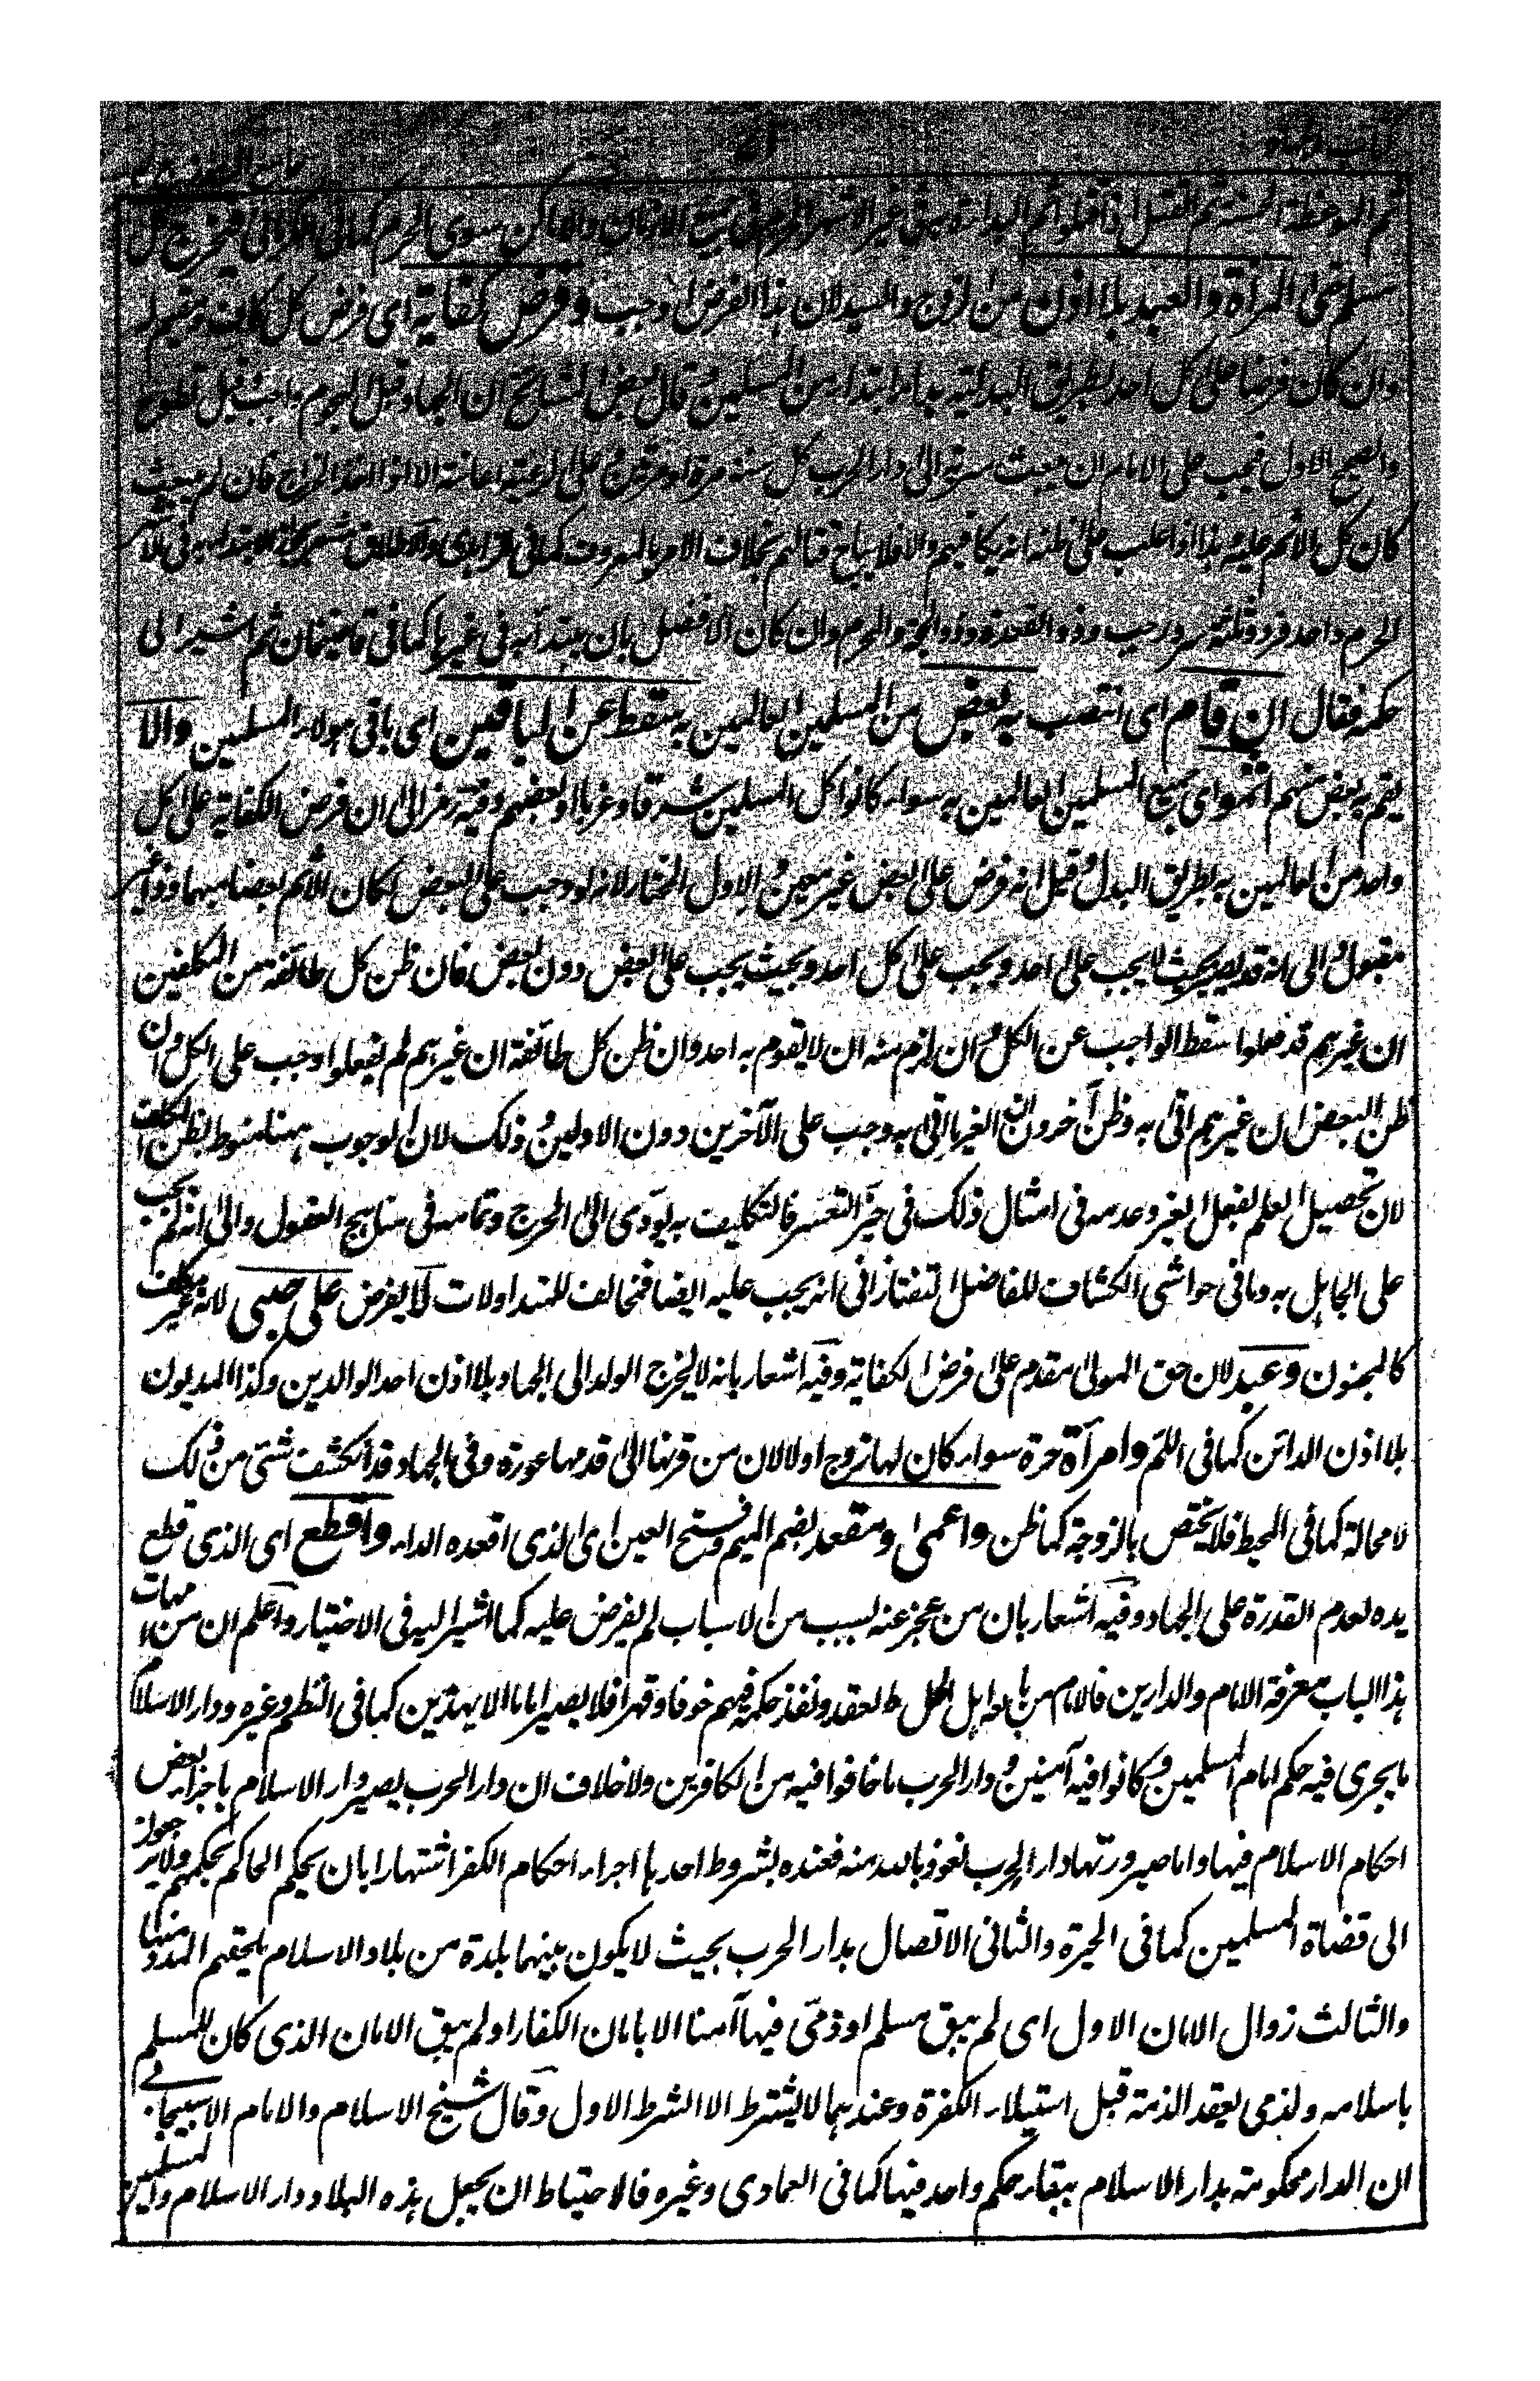 كتاب الجهاد
ثم الموعظة الحسنة ثم القتال اذا قاتلوا ثم البداءة به في غير الاشهر الحرم ثم في جميع الازمان والاماكن سوى الحرم كما في الكرماني فيخرج كل
مسلم حتى المرأة والعبد بلا اذن من الزوج والسيد لان هذا الفرض اوجب وفرض كفاية اى فرض كل كاف ومقيم له
وان كان فرضا على كل احد بطريق البدلية بدءا اى ابتداء من المسلمين وقال بعض المشائخ ان الجهاد قبل الهجوم واجب وقيل تطوع
والصحيح الاول فيجب على الامام ان يبعث سرية الى دار الحرب كل سنة مرة او مرتين وعلى الرعية اعانته الا اذا اخذ الخراج فان لم يبعث
كان كل الاثم عليه وهذا اذا غلب على ظنه انه يكافيهم والا فلا يباح قتالهم بخلاف الامر بالمعروف كما في الزاهدى والاطلاق مشير الى انه لا يبتدأ به في ثلاثة
الحرم واحد فرد وثلثة سرد رجب وذو القعدة وذو الحجة والمحرم وان كان الافضل بان يبتدأ به في غيرها كما في قاضيخان ثم اشير الى
حكمه فقال ان قام اى انتصب به بعض من المسلمين العالمين به سقط عن الباقين اى باقى هؤلاء المسلمين والا
يقم به بعض منهم اثموا اى جميع المسلمين العالمين به سواء كانوا كل المسلمين شرقا وغربا او بعضهم وفيه رمز الى ان فرض الكفاية على كل
واحد من العالمين به بطريق البدل وقيل انه فرض على بعض غير معين والاول المختار لانه لو وجب على البعض لكان الآثم بعضا مبهما وذا غير
مقبول والى انه قد يصير بحيث لا يجب على احد ويجب على كل احد وبحيث يجب على بعض دون بعض فان ظن كل طائفة من المكلفين
ان غيرهم قد فعلوا سقط الواجب عن الكل وان لزم منه ان لا يقوم به احد وان ظن كل طائفة ان غيرهم لم يفعلوا وجب على الكل وان
ظن البعض ان غيرهم اتى به وظن آخرون ان الغير ما اتى به وجب على الآخرين دون الاولين وذلك لان الوجوب ههنا منوط بظن المكلف
لان تحصيل العلم بفعل الغير وعدمه في امثال ذلك في حيز التعسر فالتكليف به يؤدى الى الحرج وتمامه في مناهج العقول والى انه لم يجب
على الجاهل به وما في حواشى الكشاف للفاضل التفتازانى انه يجب عليه ايضا فمخالف للمتداولات لا يفرض على صبى لانه غير مكلف
كالمجنون وعبد لان حق المولى مقدم على فرض الكفاية وفيه اشعار بانه لا يخرج الولد الى الجهاد بلا اذن احد الوالدين وكذا المديون
بلا اذن الدائن كما في اللم وامرأة حرة سواء كان لها زوج او لا لان من قرنها الى قدمها عورة وفي الجهاد قد انكشف شئ من ذلك
لا محالة كما في المحيط فلا يختص بالزوجة كما ظن واعمى ومقعد بضم الميم وفتح العين اى الذى اقعده الداء واقطع اى الذى قطع
يده لعدم القدرة على الجهاد وفيه اشعار بان من عجز عنه بسبب من الاسباب لم يفرض عليه كما اشير اليه في الاختيار واعلم ان من مهمات
هذا الباب معرفة الامام والدارين فالامام من بايعه اهل الحل والعقد ونفذ حكمه فيهم خوفا وقهرا فلا يصير اماما الا بهذين كما في النظم وغيره ودار الاسلام
ما يجرى فيه حكم امام المسلمين وكانوا فيه آمنين ودار الحرب ما خافوا فيه من الكافرين ولا خلاف ان دار الحرب يصير دار الاسلام باجراء بعض
احكام الاسلام فيها واما صيرورتها دار الحرب نعوذ بالله منه فعنده بشروط احدها اجراء احكام الكفر اشتهارا بان يحكم الحاكم بحكمهم ولا يرجعون
الى قضاة المسلمين كما في الحيرة والثانى الاتصال بدار الحرب بحيث لا يكون بينهما بلدة من بلاد الاسلام يلحقهم المدد منها
والثالث زوال الامان الاول اى لم يبق مسلم او ذمى فيها آمنا الا بامان الكفار او لم يبق الامان الذى كان للمسلم
باسلامه ولذمى بعقد الذمة قبل استيلاء الكفرة وعندهما لا يشترط الا الشرط الاول وقال شيخ الاسلام والامام الاسبيجابى
ان الدار محكومة بدار الاسلام ببقاء حكم واحد فيها كما في العمادى وغيره فالاحتياط ان يجعل هذه البلاد دار الاسلام والمسلمين